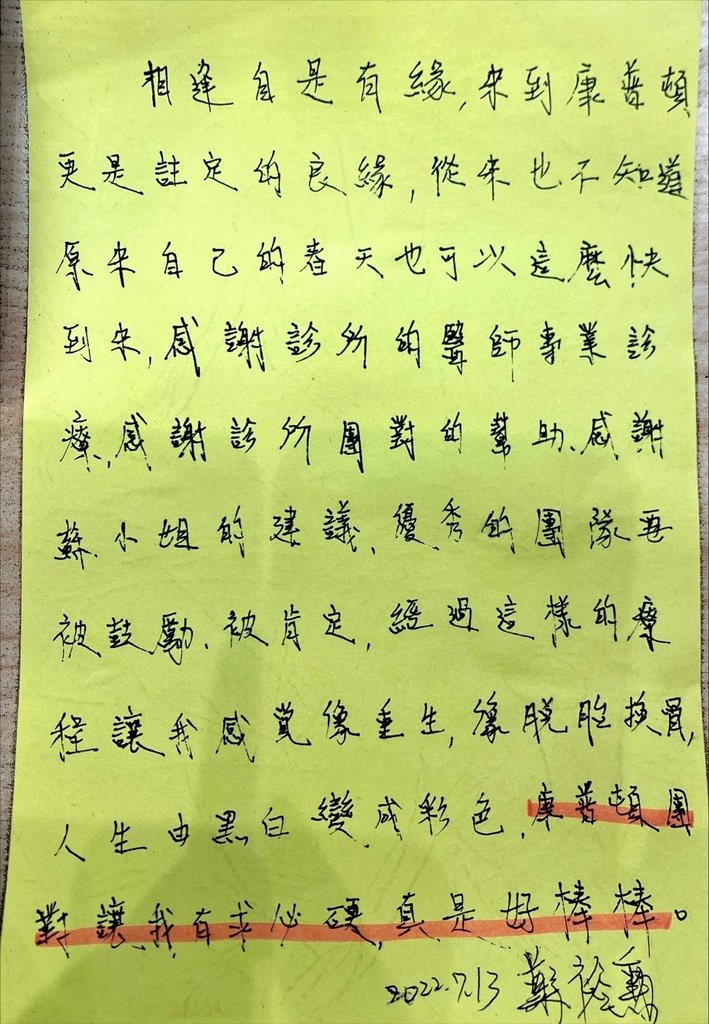 相逢自是有緣,來到康普頓
更是註定的良緣,從來也不知道
原來自己的春天也可以這麼快
到來,感謝診所的醫師專業診
療、感謝診所團對的幫助、感謝
蘇小姐的建議,優秀的團隊要
被鼓勵、被肯定,經過這樣的療
程讓我感覺像重生,像脫胎換骨,
人生由黑白變成彩色,康普頓團
對讓我有求必硬,真是好棒棒。
2022.7.13